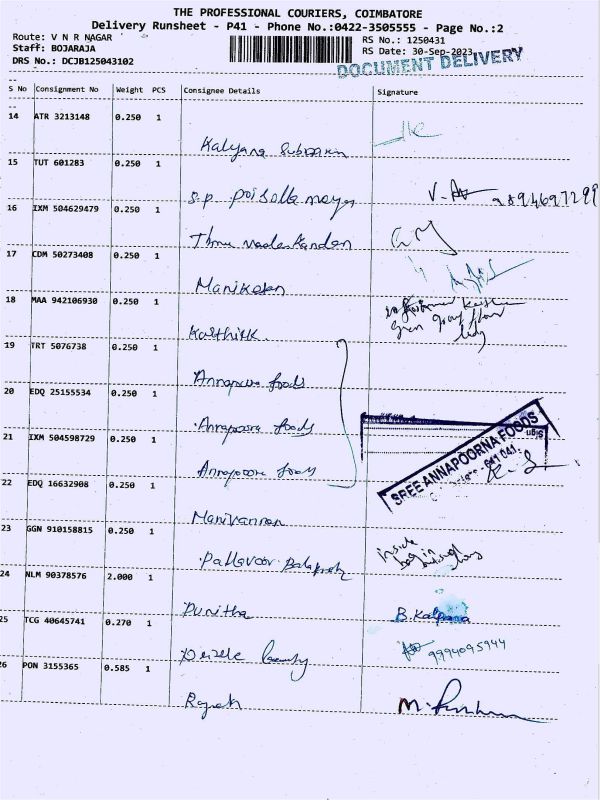 THE PROFESSIONAL COURIERS, COIMBATORE
Delivery Runsheet - P41 - Phone No.:0422-3505555 - Page No.:2
Route: V N R NAGAR
RS No.: 1250431
Staff: BOJARAJA
RS Date: 30-Sep-2023
DRS No.: DCJB125043102
DOCUMENT DELIVERY
S No Consignment No Weight PCS Consignee Details Signature
14 ATR 3213148 0.250 1
Kalyana
15 TUT 601283 0.250 1
S.P
16 IXM 504629479 0.250 1
17 CDM 50273408 0.250 1
18 MAA 942106930 0.250 1
Karthik
19 TRT 5076738 0.250 1
Annapoorna foods
20 EDQ 25155534 0.250 1
Annapoorna foods
21 IXM 504598729 0.250 1
Annapoorna foods
SREE ANNAPOORNA FOODS
641 041.
Sign
22 EDQ 16632908 0.250 1
Manivannan
23 GGN 910158815 0.250 1
24 NLM 90378576 2.000 1
Punitha B. Kalpana
25 TCG 40645741 0.270 1
9994095944
26 PON 3155365 0.585 1